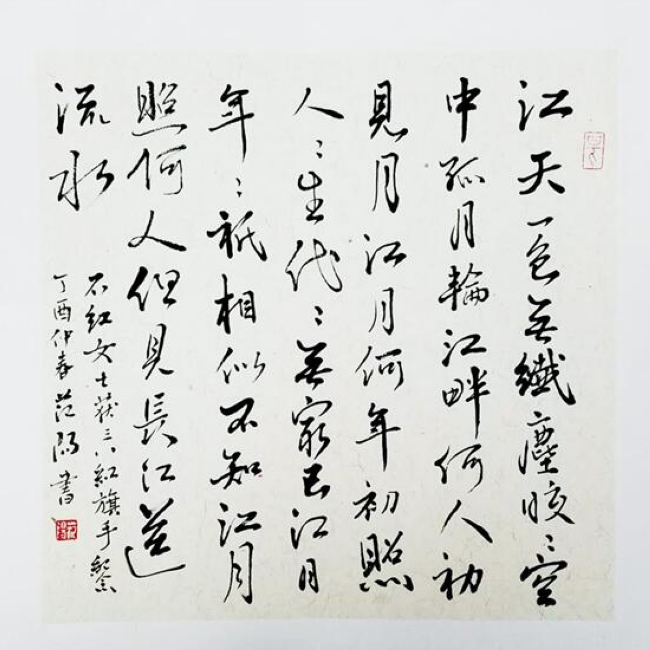 江天一色無纖塵皎〻空
中孤月輪江畔何人初
見月江月何年初照
人〻生代〻無窮已江月
年〻祇相似不知江月
照何人但見長江送
流水
石紅女士获三八紅旗手紀念
丁酉仲春范陽書